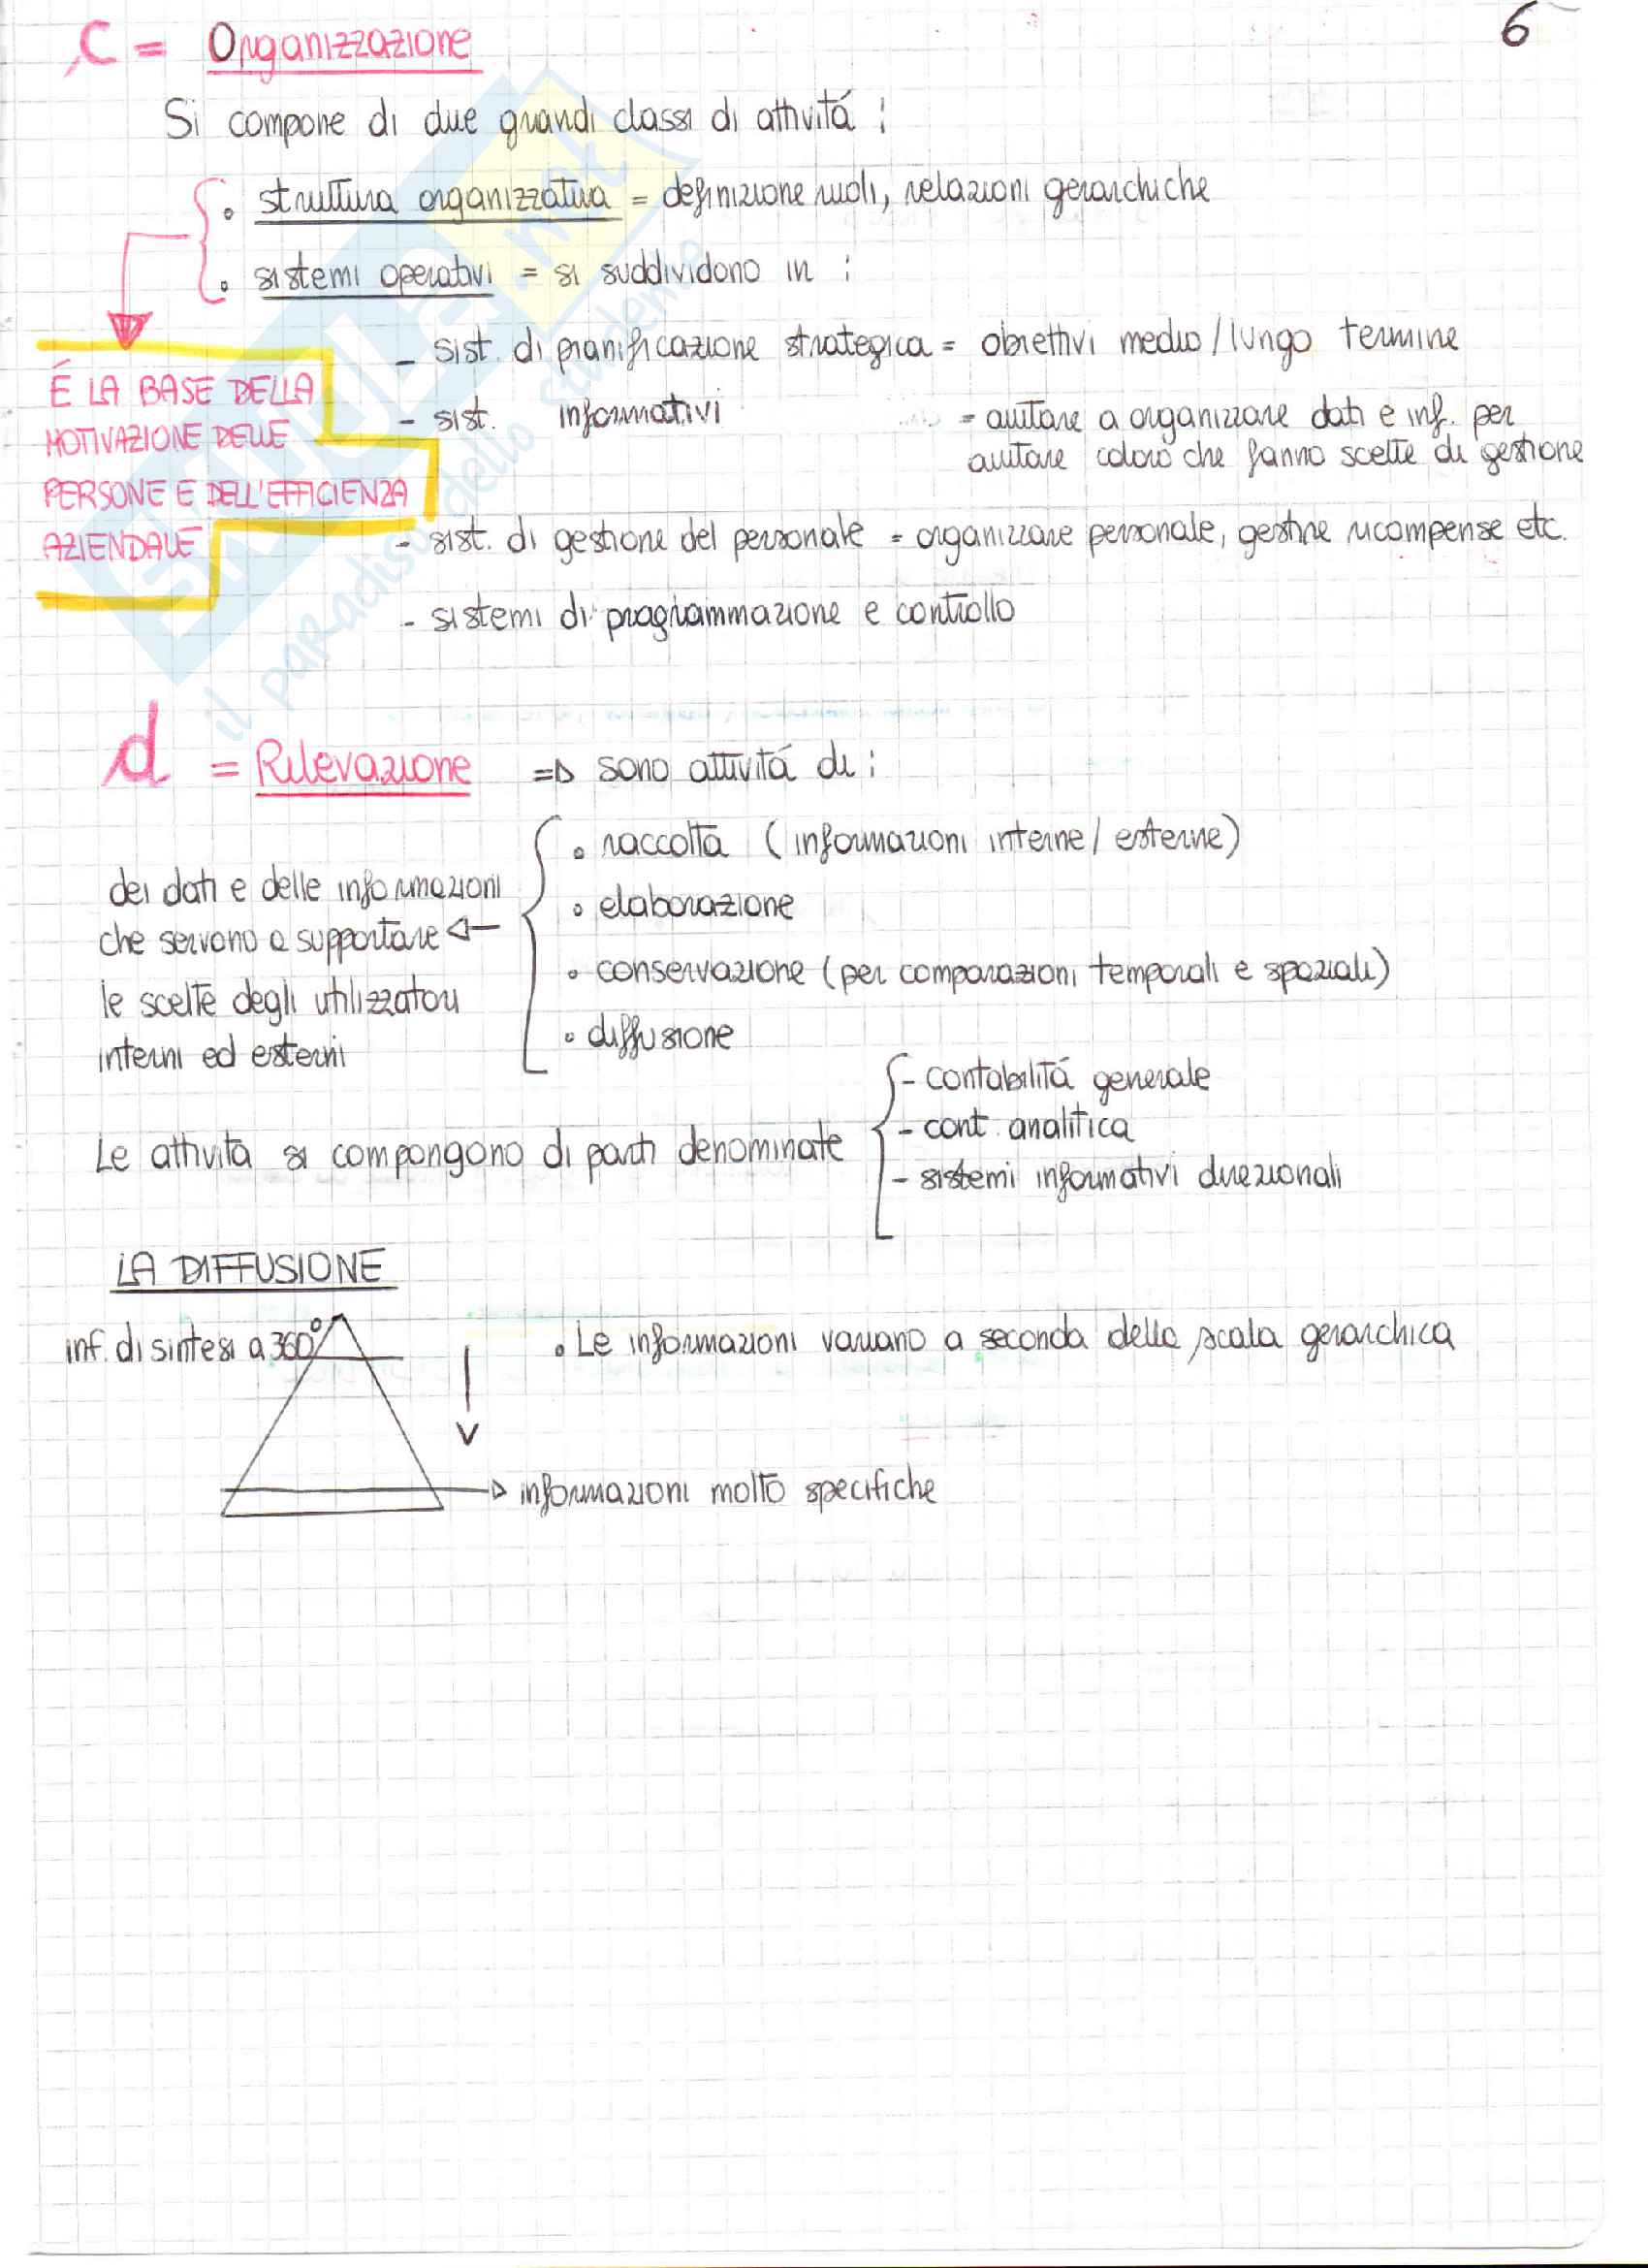 6
C = Organizzazione
Si compone di due grandi classi di attivitá :
• struttura organizzativa = definizione ruoli, relazioni gerarchiche
• sistemi operativi = si suddividono in :
- sist. di pianificazione strategica = obiettivi medio/lungo termine
- sist. informativi = aiutare a organizzare dati e inf. per
aiutare coloro che fanno scelte di gestione
- sist. di gestione del personale = organizzare personale, gestire ricompense etc.
- sistemi di programmazione e controllo
É LA BASE DELLA
MOTIVAZIONE DELLE
PERSONE E DELL'EFFICIENZA
AZIENDALE
d = Rilevazione => sono attivitá di :
• raccolta (informazioni interne/ esterne)
• elaborazione
• conservazione (per comparazioni temporali e spaziali)
• diffusione
dei dati e delle informazioni
che servono a supportare
le scelte degli utilizzatori
interni ed esterni
Le attività si compongono di parti denominate
- contabilitá generale
- cont. analitica
- sistemi informativi direzionali
LA DIFFUSIONE
inf. di sintesi a 360°
• Le informazioni variano a seconda della scala gerarchica
informazioni molto specifiche
SKUOLA.net
il paradiso dello studente